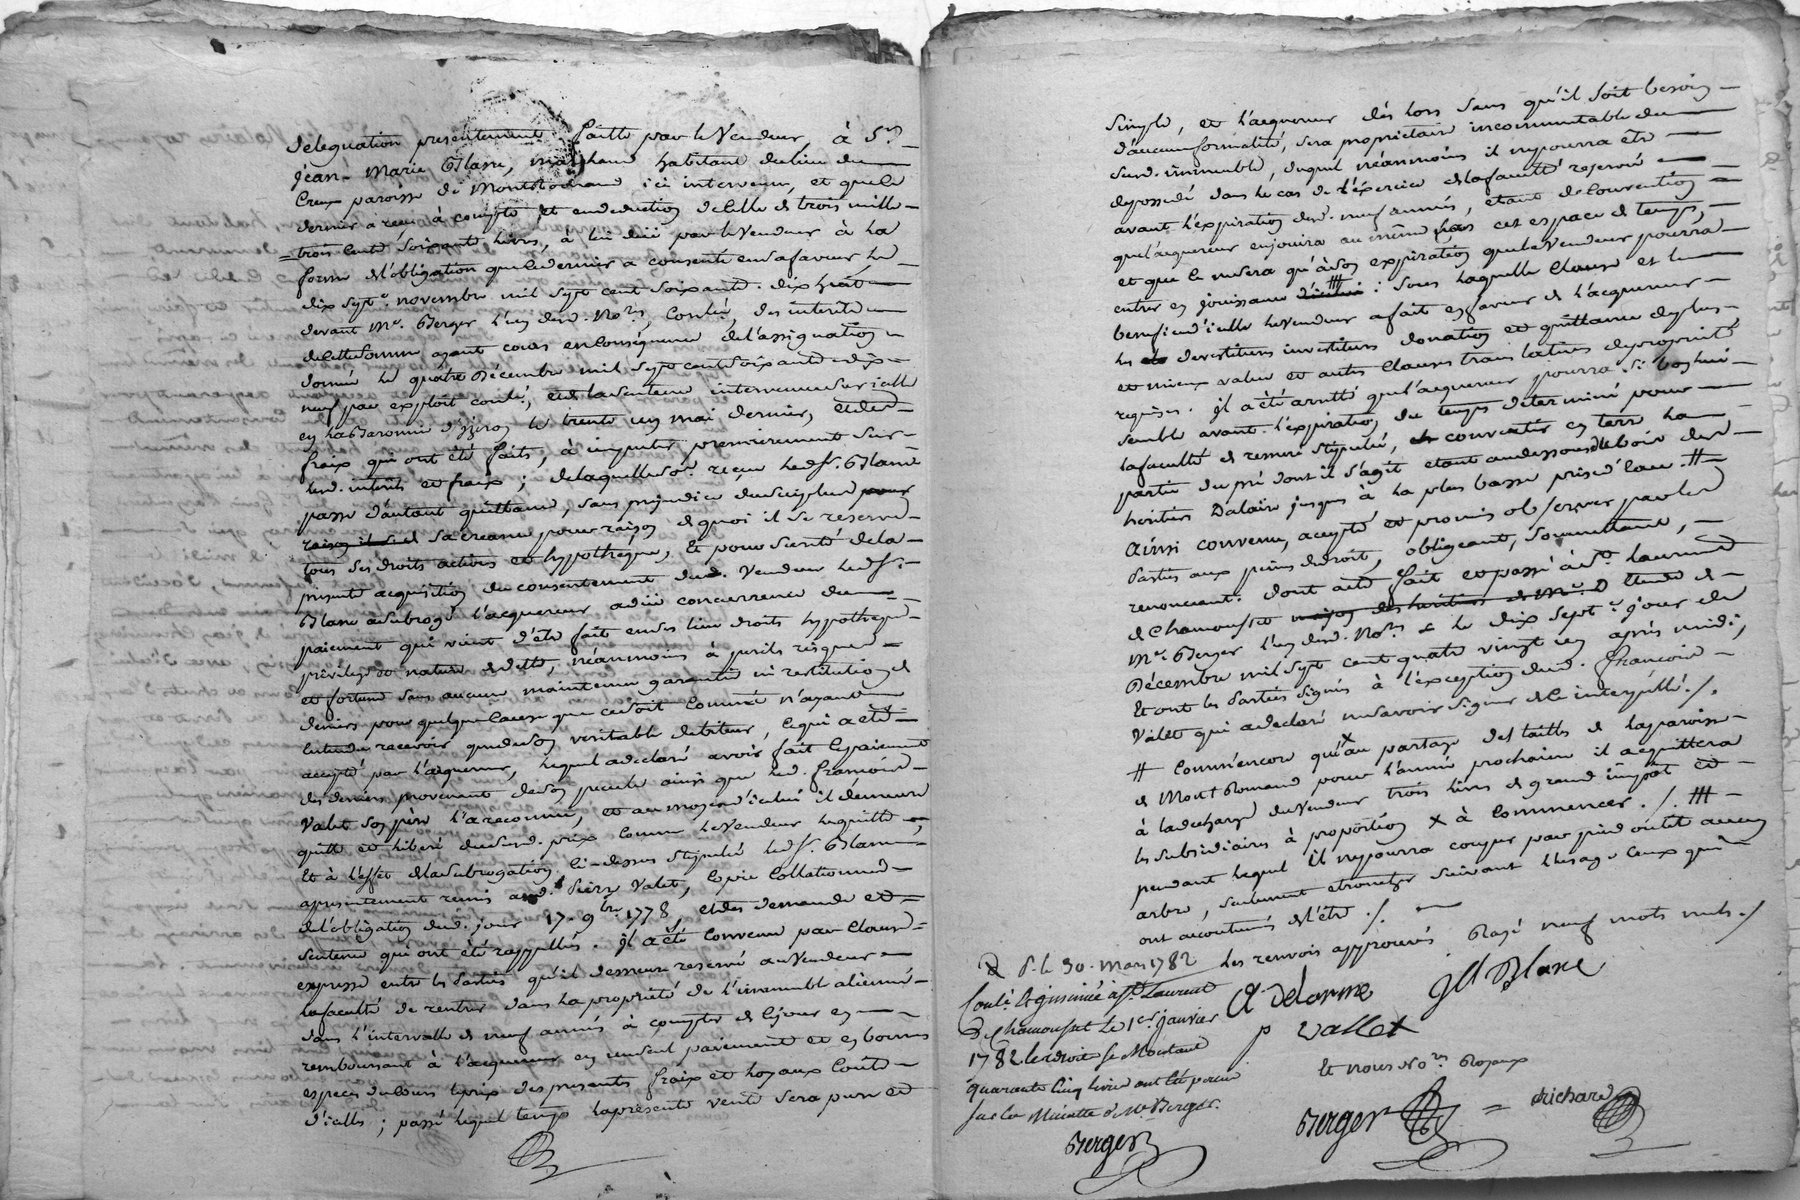 délégation presentement faitte par le Vendeur, à Sr.
jean-Marie Blanc, marchand habitant du lieu du
Creux paroisse de Montromand ici intervenu, et que le
dernier a reçu à compte et en deduction de celle de trois mille
trois cents soixante livres, à lui düe par le Vendeur à la
forme de l'obligation que le dernier a consenti en sa faveur le
dix sept novembre mil sept cent soixante dix huit
devant Me. Berger l'un desd. Nores, Contlé, des interêts
de cette somme ayant cours en Conséquence de l'assignation
donnée le quatre Décembre mil sept cent soixante dix
neuf par exploit contlé, et de la sentence intervenue sur icelle
en la Baronnie d'yzeron le trente un mai dernier, et des
fraix qui ont été faits, à imputer premierement sur
lesd. intérêts et fraix ; de laquelle so.e reçue led. Sr. Blanc
passe d'autant quittance, sans préjudice du surplus pour
raison il se d sa creance pour raison de quoi il se reserve
tous ses droits actions et hypotheques, Et pour sureté de la
presente acquisition du consentement dud. Vendeur led. Sr.
Blanc a subrogé l'acquereur a düe concurrence du
paiement qui vient d'etre fait en ses lieu droits hypotheques
privilege et nature de dette, néanmoins à perils risques
et fortune sans aucune maintenue garantie ni restitution de
deniers pour quelque cause que ce soit Comme n'ayant
entendu recevoir que de son veritable debiteur, ce qui a été
accepté par l'acquereur, lequel a declaré avoir fait le paiement
des deniers provenant de son pecule ainsi que led. françois
Valet son père l'a reconnu, et au moyen d'icelui il demeure
quitte et liberé dud. prix comme le Vendeur le quitte
Et à l'effet de la subrogation ci-dessus stipulée led. Sr. Blanc
a presentement remis aud. Pierre Valet, Copie Collationnée
de l'obligation dud. jour 17. 9bre 1778, et des demande et
sentence qui ont été rappellés. il a été Convenu par Clause
expresse entre les Parties qu'il demeure reservé au Vendeur
la faculté de rentrer dans la propriété de l'immeuble aliené
dans l'intervalle de neuf années à compter de ce jour en
remboursant à l'acquereur en un seul paiement et en bonnes
especes de cours le prix des presentes fraix et loyaux Couts
d'icelles ; passé lequel temps la presente vente sera pure et
simple, et l'acquereur dès lors sans qu'il soit besoin
d'aucune formalité, sera propriétaire incommutable du
susd. immeuble, duquel néanmoins il ne pourra etre
depossedé dans le cas de l'exercice de la faculté reservée
avant l'expiration desd. neuf années, etant de Convention
que l'acquereur en jouira au même cas cet espace de temps,
et que ce ne sera qu'à son expiration que le Vendeur pourra
entrer en jouissance d'icelui : sous laquelle Clause et le
benefice d'icelle le vendeur a fait en faveur de l'acquereur
les devestiture investiture donation et quittance de plus
et mieux value et autres Clauses translatives de propriété
requises. il a été arretté que l'acquereur pourra si bon lui
semble avant l'expiration du temps determiné pour
la faculté de remeré stipulée, convertir en terre la
partie du pré dont il s'agit etant au dessous du bois des
heritiers Dalain jusques à la plus basse prise d'eau. #
Ainsi convenu, accepté et promis observer par les
Parties aux peines de droit, obligeant, soumettant,
renonceant. dont acte fait et passé à St. Laurent
de Chamousset maison des heritiers de Me. D Etude de
Me. Berger l'un desd. Nores le dix sept.e jour de
Décembre mil sept cent quatre vingt un après midi,
Et ont les Parties signés à l'exception dud. françois
Valet qui a declaré ne savoir signer de ce interpellé ./.
# Comm'encore qu'au partage des tailles de la paroisse
de Mont Romand pour l'année prochaine il acquittera
à la decharge du Vendeur trois livres de grand impôt et
les subsidiaires à proportion x à Commencer ./. #
pendant lequel il ne pourra couper par pied oultre aucun
arbre, seulement etronchez suivant l'usage Ceux qui
ont accoutumés de l'etre ./.
les renvois approuvés Rayé neuf mots nuls ./
P. le 30. Mars 1782
Contlé & insinuée à St. Laurent
De Chamousset le 1er. janvier
1782 les droits se Montant
quarante Cinq livres ont été perçu
sur la Minutte de Me Berger.
Berger
A. Delorme JM Blanc
p vallet
Et nous Nores Royaux
Berger = Richard